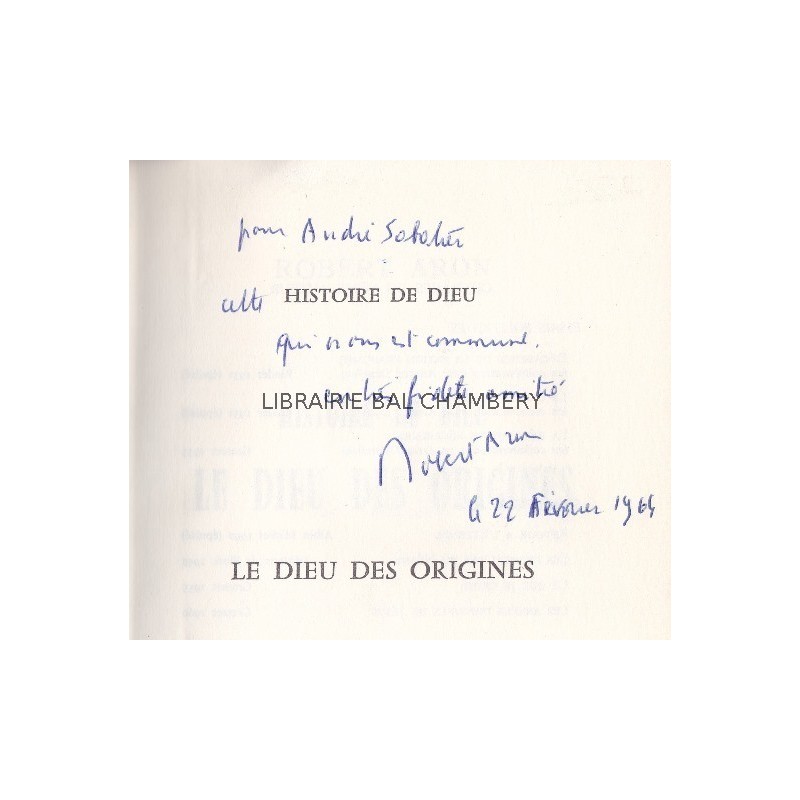 pour André Sabatier
cette HISTOIRE DE DIEU
qui nous est commune.
en très fidèle amitié
LIBRAIRIE BAL CHAMBERY
Robert Aron
le 22 Février 1964
LE DIEU DES ORIGINES